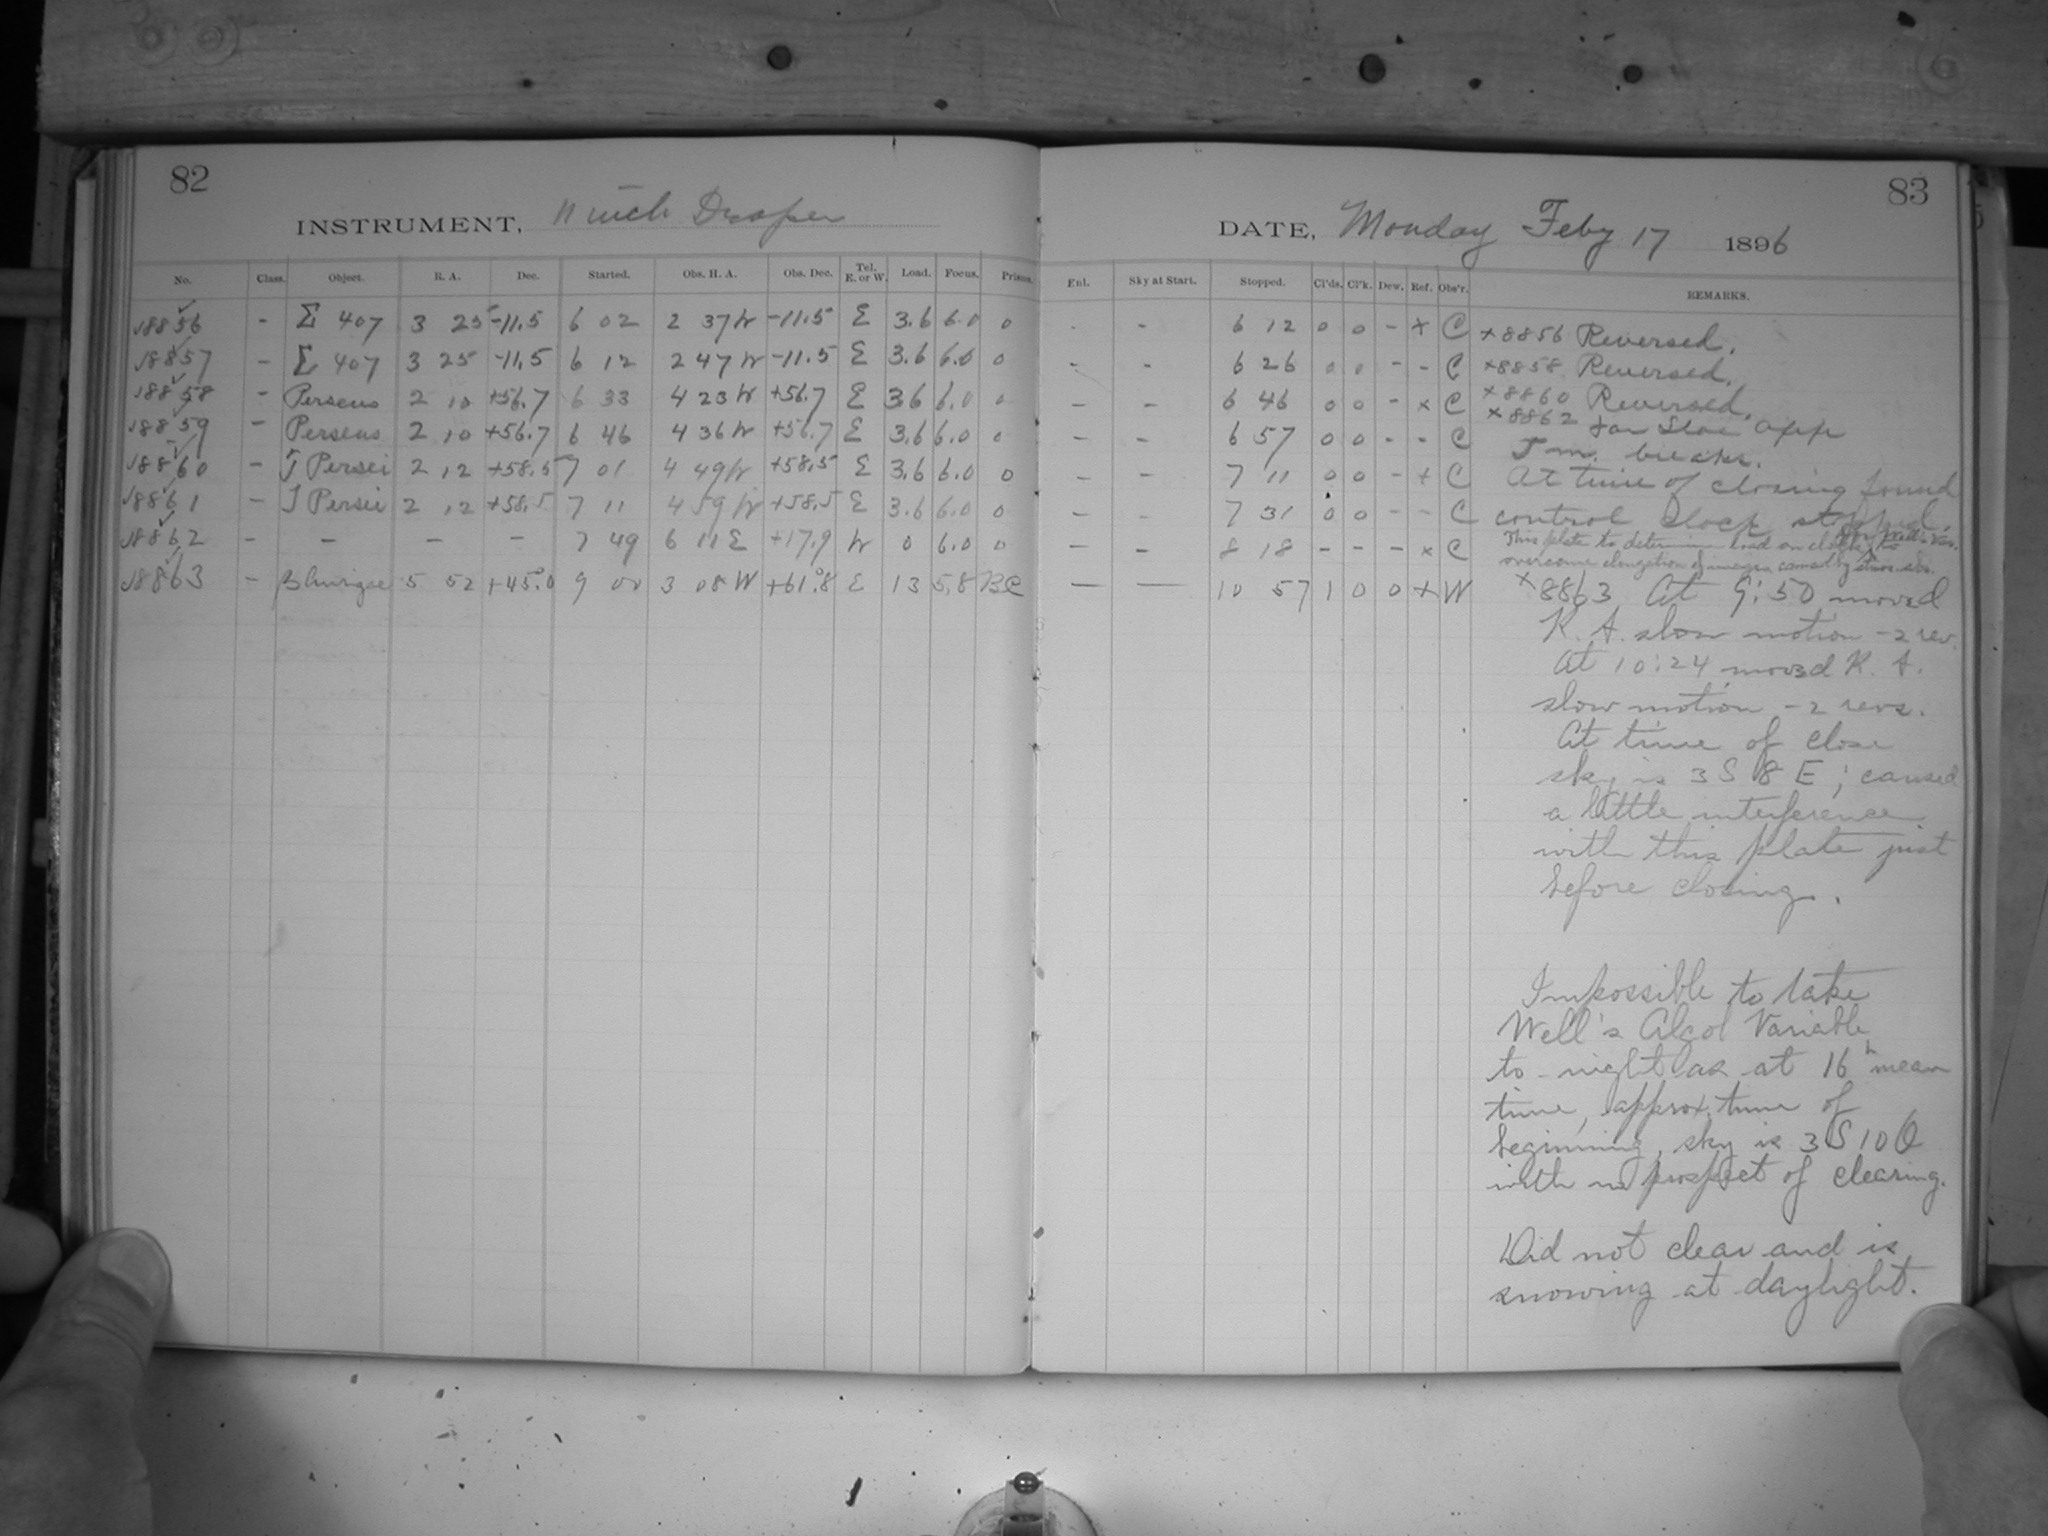 82
INSTRUMENT, 11 inch Draper
No. Class. Object. R. A. Dec. Started. Obs. H. A. Obs. Dec. Tel. E. or W. Load. Focus. Prisms.
18856 - Σ 407 3 25 -11.5 6 02 2 37 W -11.5 E 3.6 6.0 0
18857 - Σ 407 3 25 -11.5 6 12 2 47 W -11.5 E 3.6 6.0 0
18858 - Perseus 2 10 +56.7 6 33 4 23 W +56.7 E 3.6 6.0 0
18859 - Perseus 2 10 +56.7 6 46 4 36 W +56.7 E 3.6 6.0 0
18860 - T Persei 2 12 +58.5 7 01 4 49 W +58.5 E 3.6 6.0 0
18861 - T Persei 2 12 +58.5 7 11 4 59 W +58.5 E 3.6 6.0 0
18862 - - - - 7 49 6 11 E +17.9 W 0 6.0 0
18863 - β Aurigae 5 52 +45.0 9 00 3 08 W +61.8 E 13 5.8 BC
83
DATE, Monday Feby 17 1896
Enl. Sky at Start. Stopped. Cl'ds. Cl'k. Dew. Ref. Obs'r. REMARKS.
- - 6 12 0 0 - x C
- - 6 26 0 0 - - C
- - 6 46 0 0 - x C
- - 6 57 0 0 - - C
- - 7 11 0 0 - + C
- - 7 31 0 0 - - C
- - 8 18 - - - x C
— — 10 57 1 0 0 + W
x8856 Reversed.
x8858 Reversed.
x8860 Reversed.
x8862
At time of closing found
control clock stopped.
This plate to determine load on clock to
overcome elongation of images caused by
x8863 At 9:50 moved
R. A. slow motion -2 rev.
At 10:24 moved R. A.
slow motion -2 revs.
At time of close
sky is 3 S 8 E; caused
a little interference
with this plate just
before closing.
Impossible to take
Well's Algol Variable
to-night as at 16h mean
time, approx. time of
beginning, sky is 3 S 10 O
with no prospect of clearing.
Did not clear and is
snowing at daylight.